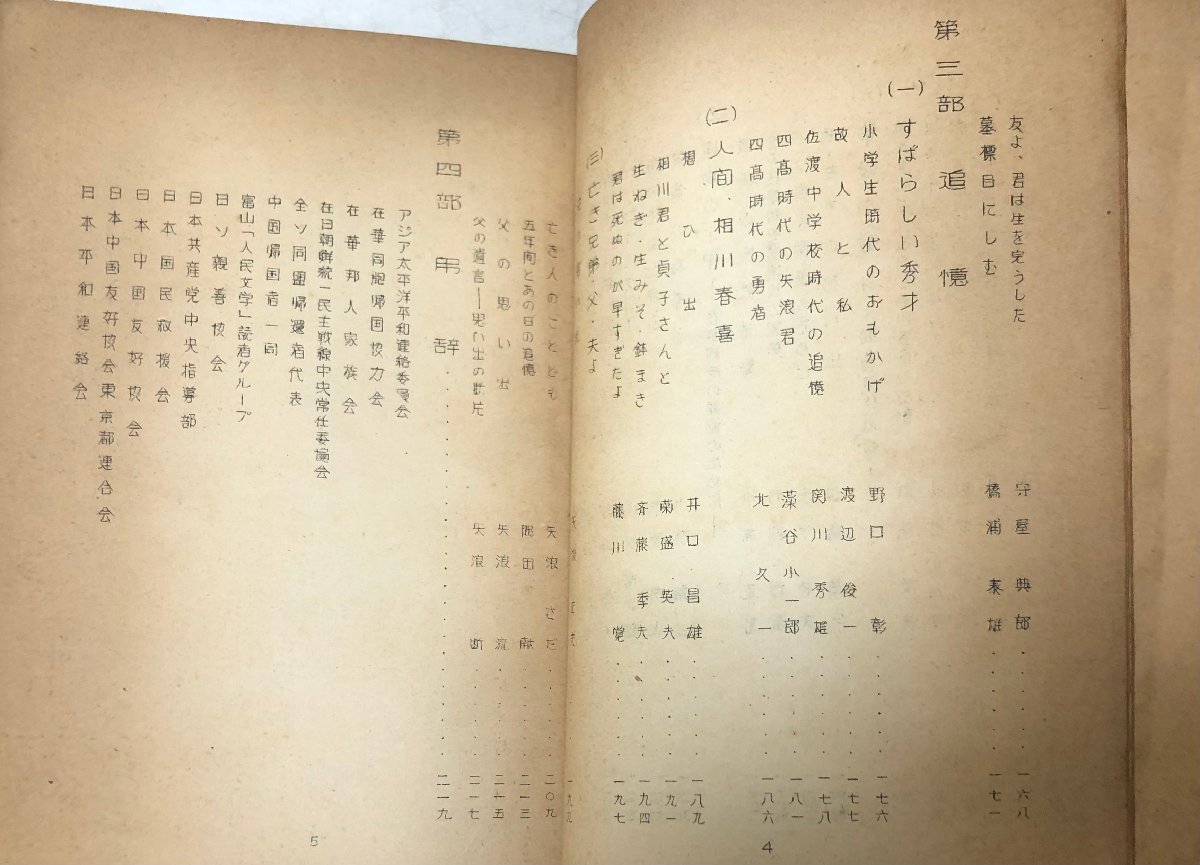 友よ、君は生を完うした 守屋典郎………一六八
墓標目にしむ 橋浦泰雄………一七一
第三部 追憶
(一) すばらしい秀才
小学生時代のおもかげ 野口 彰………一七六
故人と私 渡辺俊一………一七七
佐渡中学校時代の追憶 関川秀雄………一七八
四高時代の矢浪君 藻谷小一郎………一八一
四高時代の勇者 北 久一………一八六
(二) 人间、相川春喜
想ひ出 井口昌雄………一八九
相川君と貞子さんと 菊盛英夫………一九一
生ねぎ・生みそ・鉢まき 斉藤季夫………一九四
君は死ぬのが早すぎたよ 藤川 覚………一九七
(三) 亡き兄弟・父・夫よ
一九九
亡き人のことども 矢浪さだ………二〇九
五年间とあの日の追憶 岡田 ………二一三
父の思い出 矢浪 流………二一五
父の遺言——思い出の断片 矢浪 断………二一七
第四部 弔辞………二一九
アジア太平洋平和連絡委員会
在華同胞帰国協力会
在華邦人家族会
在日朝鮮統一民主戦線中央常任委員会
全ソ同盟帰還者代表
中国帰国者一同
富山「人民文学」読者グループ
日ソ親善協会
日本共産党中央指導部
日本国民救援会
日本中国友好協会
日本中国友好協会東京都連合会
日本平和連絡会
4
5